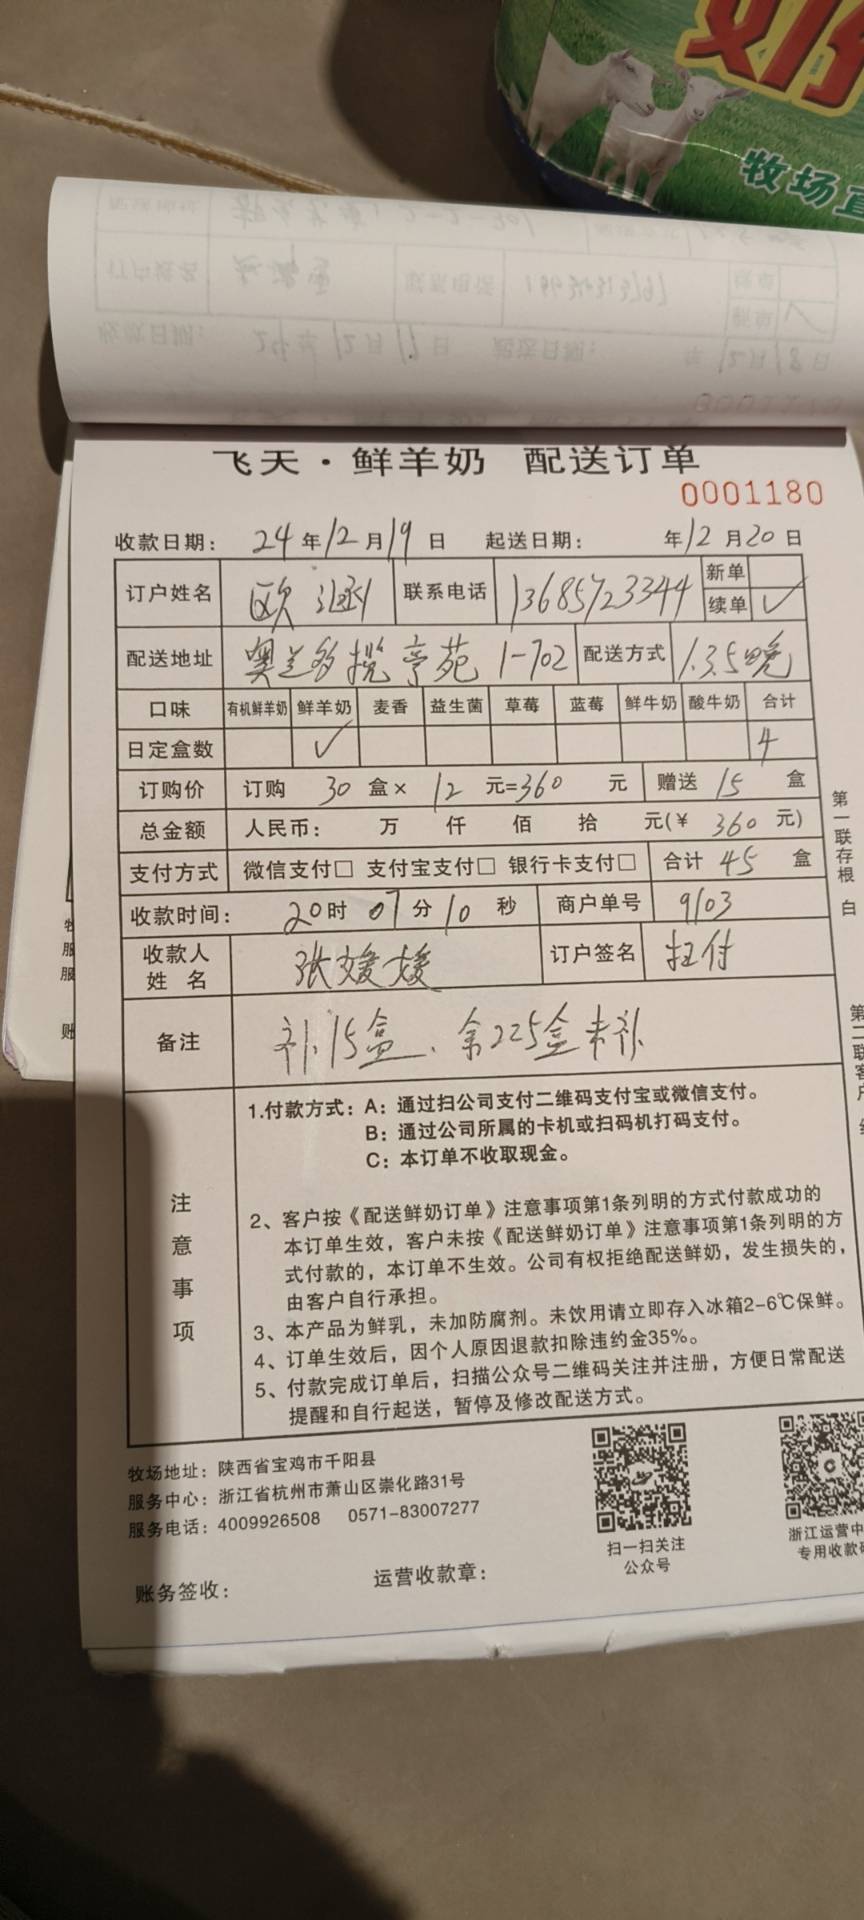 奶
牧场直
飞天·鲜羊奶 配送订单
0001180
收款日期: 24年12月19日 起送日期: 年12月20日
订户姓名 欧涵 联系电话 13685723344 新单
续单 ✓
配送地址 奥兰多揽亭苑 1-702 配送方式 1.3.5晚
口味 有机鲜羊奶 鲜羊奶 麦香 益生菌 草莓 蓝莓 鲜牛奶 酸牛奶 合计
日定盒数 ✓ 4
订购价 订购 30 盒× 12 元=360 元 赠送 15 盒
总金额 人民币: 万 仟 佰 拾 元(¥ 360 元)
支付方式 微信支付□ 支付宝支付□ 银行卡支付□ 合计 45 盒
收款时间: 20时07分10秒 商户单号 9103
收款人姓名 张媛媛 订户签名 扫付
备注 补15盒、余225盒未补
注意事项
1.付款方式: A: 通过扫公司支付二维码支付宝或微信支付。
B: 通过公司所属的卡机或扫码机打码支付。
C: 本订单不收取现金。
2、客户按《配送鲜奶订单》注意事项第1条列明的方式付款成功的
本订单生效，客户未按《配送鲜奶订单》注意事项第1条列明的方
式付款的，本订单不生效。公司有权拒绝配送鲜奶，发生损失的，
由客户自行承担。
3、本产品为鲜乳，未加防腐剂。未饮用请立即存入冰箱2-6℃保鲜。
4、订单生效后，因个人原因退款扣除违约金35%。
5、付款完成订单后，扫描公众号二维码关注并注册，方便日常配送
提醒和自行起送，暂停及修改配送方式。
牧场地址: 陕西省宝鸡市千阳县
服务中心: 浙江省杭州市萧山区崇化路31号
服务电话: 4009926508 0571-83007277
扫一扫关注
公众号
浙江运营中
专用收款
账务签收: 运营收款章:
第一联存根 白
第二联客户